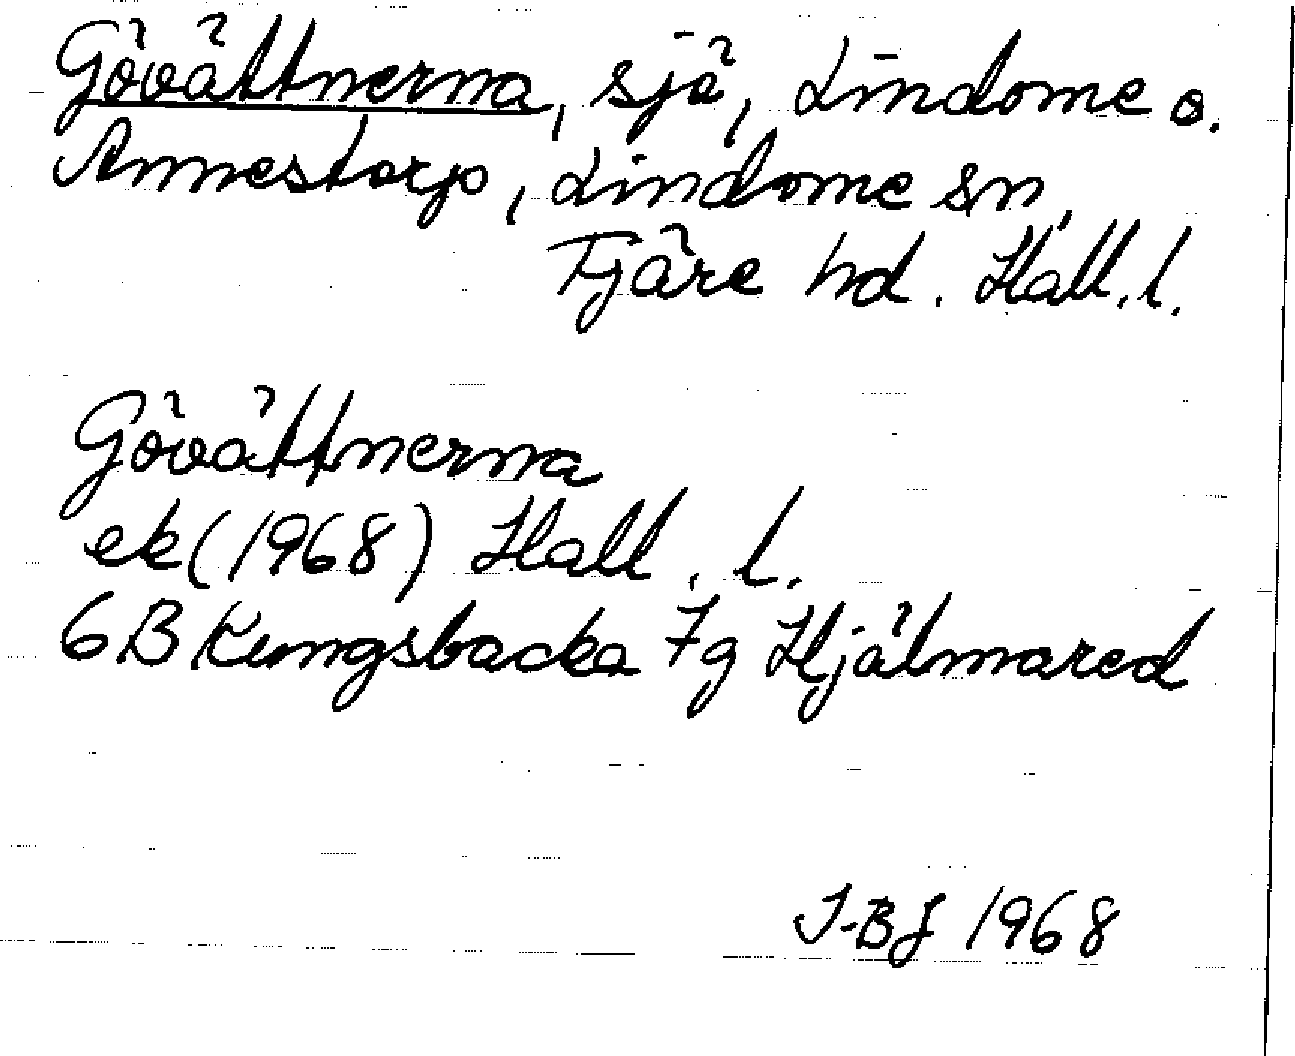 Gövättnerna, sjö, Lindome o.
Annestorp, Lindome sn,
Fjäre hd. Hall. l.
Gövättnerna
ek (1968) Hall. l.
6B Kungsbacka 7g Hjälmared
J-BJ 1968